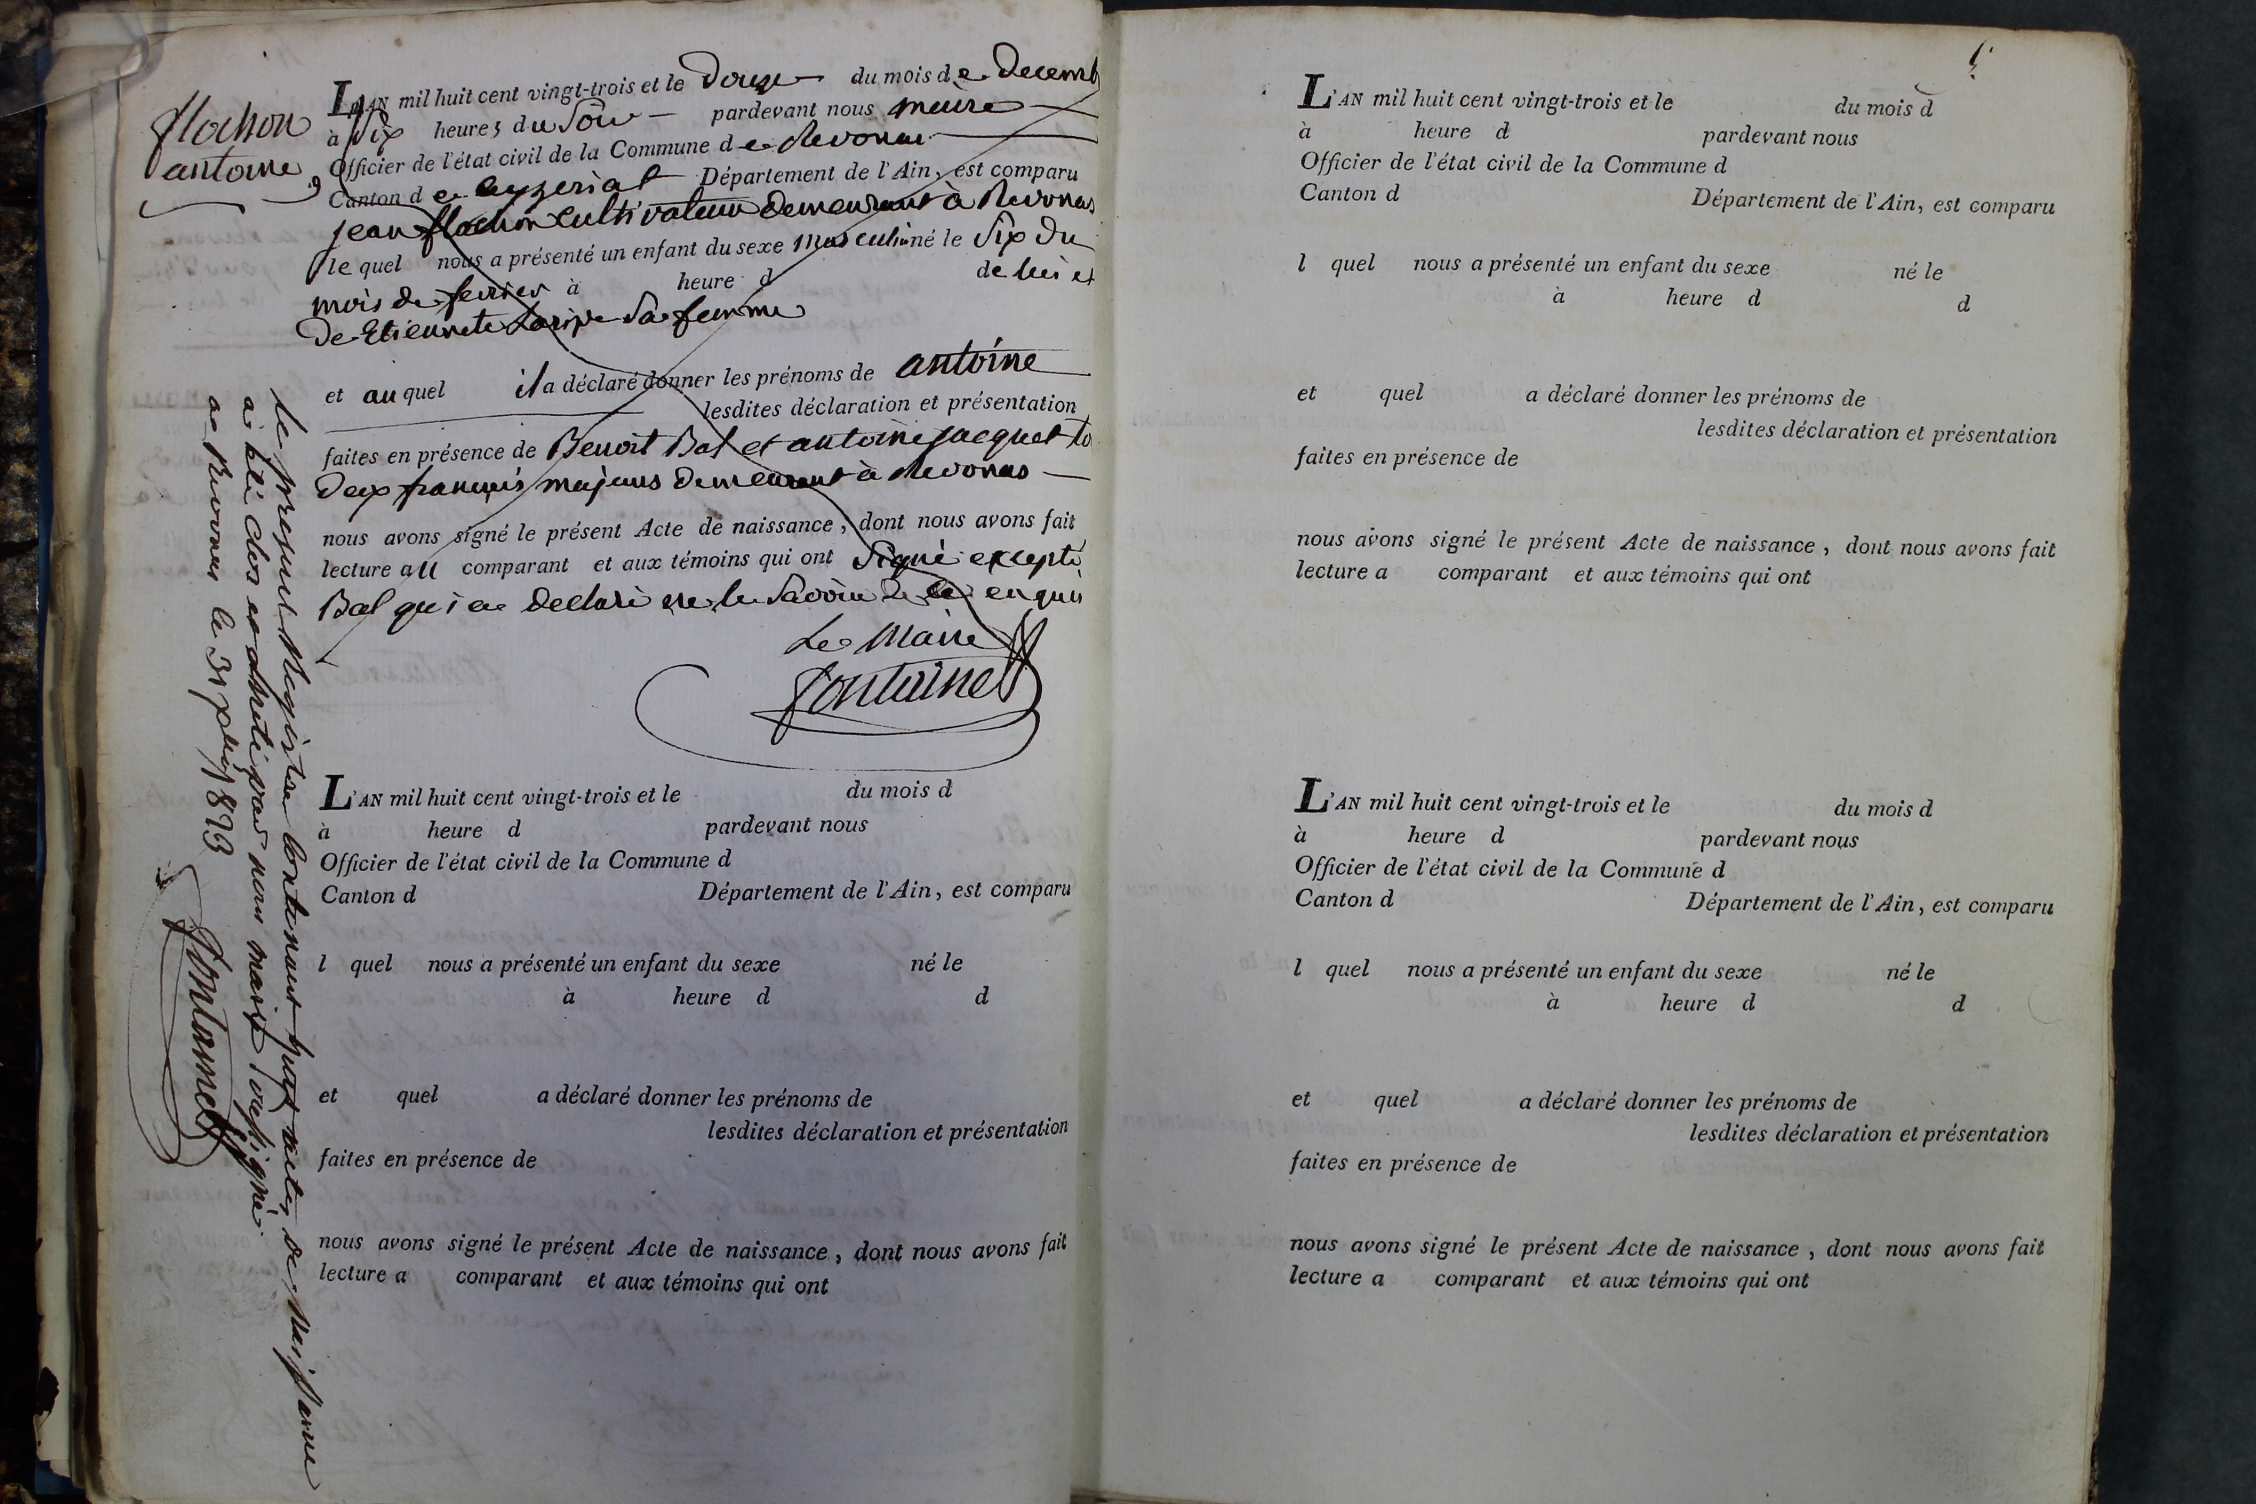 flochon
antoine
L'AN mil huit cent vingt-trois et le Douze du mois de decemb
à six heures du soir pardevant nous maire
Officier de l'état civil de la Commune de Revonas
Canton de ceyzeriat Département de l'Ain, est comparu
jean flochon cultivateur demeurant à Revonas
lequel nous a présenté un enfant du sexe masculin né le six du
mois de fevrier à heure d de lui et
de Etiennete Laripe sa femme
et auquel il a déclaré donner les prénoms de antoine
lesdites déclaration et présentation
faites en présence de Benoit Bal et antoine jacquet to
deux français majeurs demeurant à Revonas
nous avons signé le présent Acte de naissance, dont nous avons fait
lecture au comparant et aux témoins qui ont signé excepté
Bal qui a declaré ne le savoir de ce enquis
Le Maire
fontaine
le present Registre contenant huit actes de naissance
a été clos et arreté par nous maire soussigné
a Revonas le 31 Xbre 1823
fontaine
L'AN mil huit cent vingt-trois et le du mois d
à heure d pardevant nous
Officier de l'état civil de la Commune d
Canton d Département de l'Ain, est comparu
l quel nous a présenté un enfant du sexe né le
à heure d d
et quel a déclaré donner les prénoms de
lesdites déclaration et présentation
faites en présence de
nous avons signé le présent Acte de naissance, dont nous avons fait
lecture a comparant et aux témoins qui ont
L'AN mil huit cent vingt-trois et le du mois d
à heure d pardevant nous
Officier de l'état civil de la Commune d
Canton d Département de l'Ain, est comparu
l quel nous a présenté un enfant du sexe né le
à heure d d
et quel a déclaré donner les prénoms de
lesdites déclaration et présentation
faites en présence de
nous avons signé le présent Acte de naissance, dont nous avons fait
lecture a comparant et aux témoins qui ont
L'AN mil huit cent vingt-trois et le du mois d
à heure d pardevant nous
Officier de l'état civil de la Commune d
Canton d Département de l'Ain, est comparu
l quel nous a présenté un enfant du sexe né le
à heure d d
et quel a déclaré donner les prénoms de
lesdites déclaration et présentation
faites en présence de
nous avons signé le présent Acte de naissance, dont nous avons fait
lecture a comparant et aux témoins qui ont